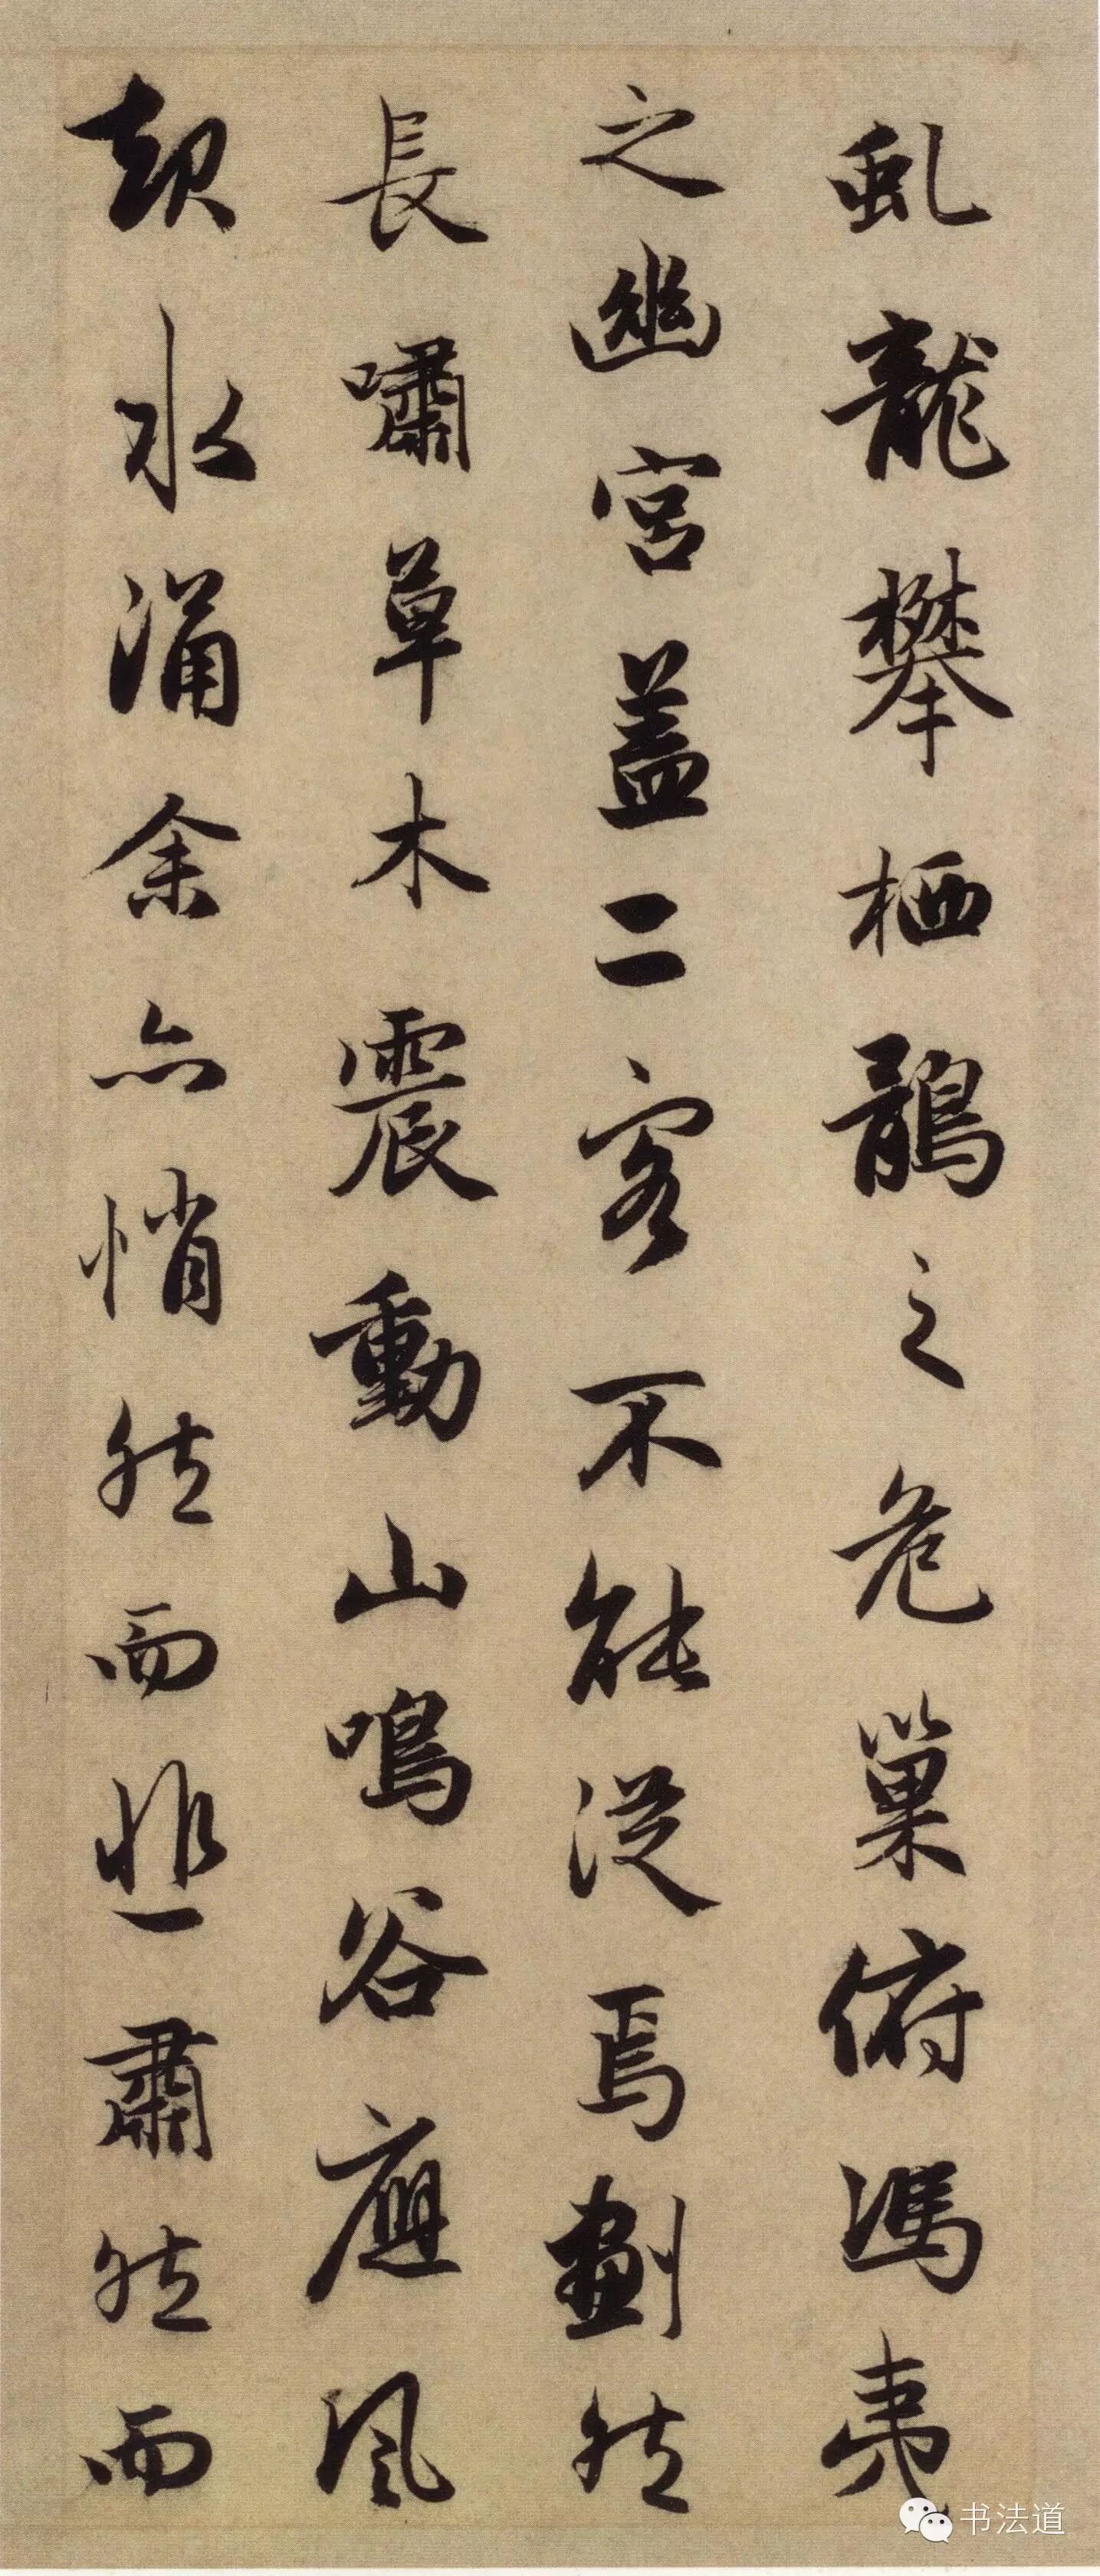 虬龍攀栖鶻之危巢俯馮夷
之幽宮盖二客不能従焉劃然
長嘯草木震動山鳴谷應風
起水涌余亦悄然而悲肅然而
书法道